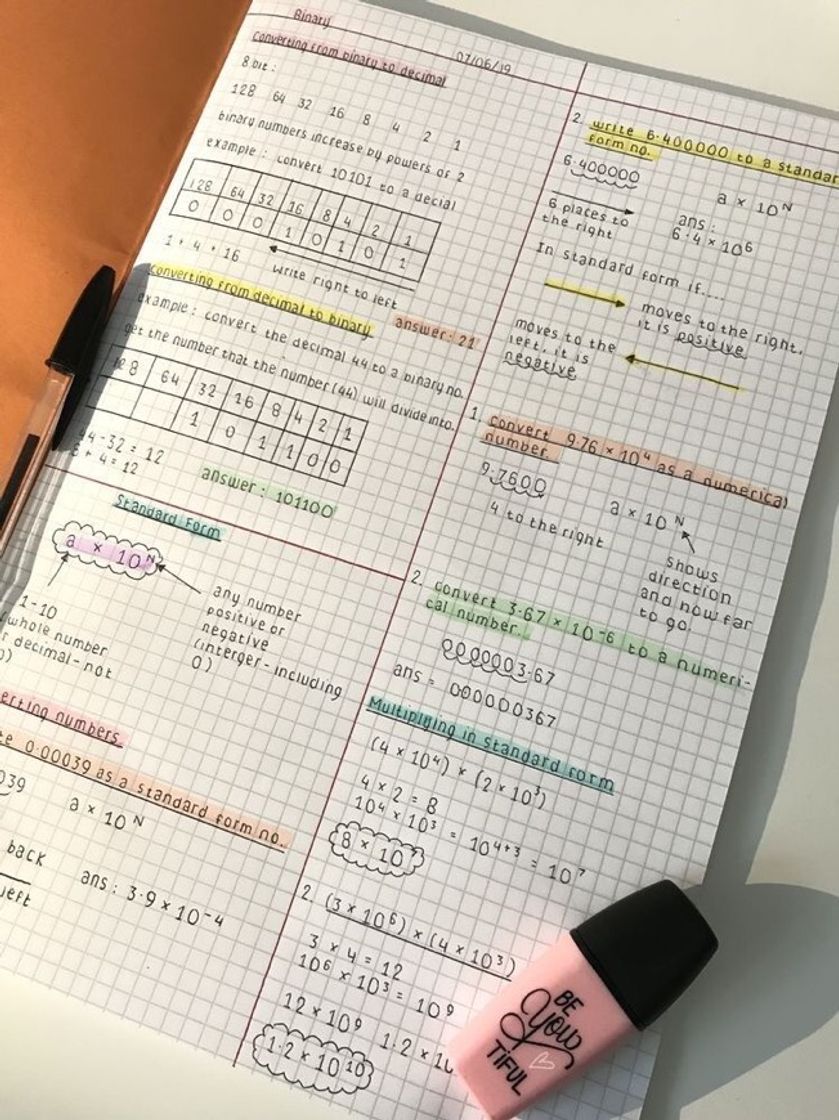 Binary
07/06/19
Converting from binary to decimal
8 bit:
128 64 32 16 8 4 2 1
binary numbers increase by powers of 2
example: convert 10101 to a decial
128 64 32 16 8 4 2 1
0 0 0 1 0 1 0 1
1 + 4 + 16
write right to left
answer: 21
converting from decimal to binary
example: convert the decimal 44 to a binary no.
get the number that the number (44) will divide into.
128 64 32 16 8 4 2 1
1 0 1 1 0 0
44-32 = 12
8 + 4 = 12
answer: 101100
Standard Form
a × 10ᴺ
1-10
whole number
decimal-not
any number
positive or
negative
(interger-including
0)
erting numbers.
0.00039 as a standard form no.
039
a × 10ᴺ
back
left
ans: 3.9 × 10⁻⁴
2. write 6.400000 to a standar
form no.
6.400000
a × 10ᴺ
6 places to
the right
ans:
6.4 × 10⁶
In standard form if....
moves to the right,
it is positive
moves to the
left, it is
negative
1. convert 9.76 × 10⁴ as a numerical
number.
9.7600
a × 10ᴺ
4 to the right
shows
direction
and how far
to go.
2. convert 3.67 × 10⁻⁶ to a numeri-
cal number.
0000003.67
ans = 000000367
Multiplying in standard form
(4 × 10⁴) × (2 × 10³)
4 × 2 = 8
10⁴ × 10³ = 10⁴⁺³ = 10⁷
8 × 10⁷
2. (3 × 10⁶) × (4 × 10³)
3 × 4 = 12
10⁶ × 10³ = 10⁹
12 × 10⁹
1.2 × 10
1.2 × 10¹⁰
BE
YOU
TIFUL